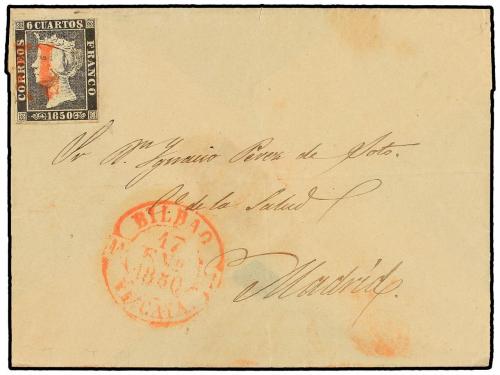 6 CUARTOS
CORREOS
FRANCO
1850
Sr Dn Ignacio Perez de Soto.
C. de la Salud
Madrid.
BILBAO
17
ENº
1850
VIZCAIA.